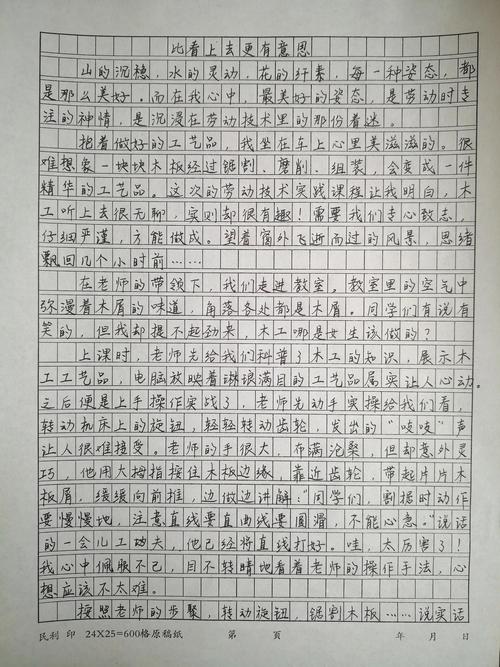 比看上去更有意思
山的沉稳，水的灵动，花的纤素，每一种姿态，都
是那么美好。而在我心中，最美好的姿态，是劳动时专
注的神情，是沉浸在劳动技术里的那份着迷。
抱着做好的工艺品，我坐在车上心里美滋滋的。很
难想象一块块木板经过锯割、磨削、组装，会变成一件
精华的工艺品。这次的劳动技术实践课程让我明白，木
工听上去很无聊，实则却很有趣！需要我们专心致志，
仔细严谨，方能做成。望着窗外飞逝而过的风景，思绪
飘回几个小时前……
在老师的带领下，我们走进教室。教室里的空气中
弥漫着木屑的味道，角落各处都是木屑。同学们有说有
笑的，但我却提不起劲来，木工哪是女生该做的？
上课时，老师先给我们科普了木工的知识，展示木
工工艺品，电脑放映着琳琅满目的工艺品属实让人心动。
之后便是上手操作实战了，老师先动手实操给我们看，
转动机床上的旋钮，轻轻转动齿轮，发出的“吱吱”声
让人很难接受。老师的手很大，布满沧桑，但却意外灵
巧，他用大拇指按住木板边缘，靠近齿轮，带起片片木
板屑，缓缓向前推，边做边讲解：“同学们，割据时动作
要慢慢地，注意直线要直曲线要圆滑，不能心急。”说话
的一会儿工功夫，他已经将直线打好。哇，太厉害了！
我心中佩服不已，目不转睛地看着老师的操作手法，心
想应该不太难。
按照老师的步聚，转动旋钮，锯割木板……说实话
民利 印 24X25=600格原稿纸 第 頁 年 月 日